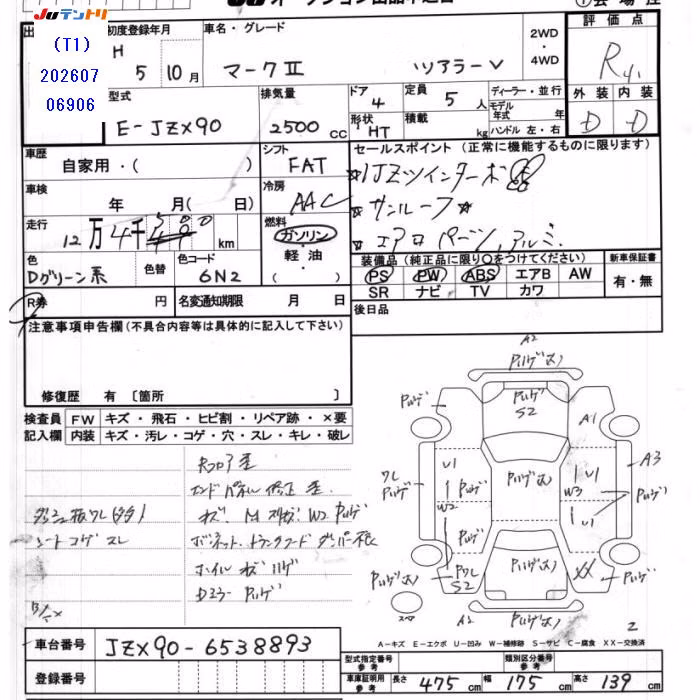 JUテントリ
(T1)
202607
06906
初度登録年月
H 5 10月
車名・グレード
マークII ツアラーV
2WD
・
4WD
評価点
R
外装 内装
D D
型式
E-JZX90
排気量
2500 cc
ドア
4
形状
HT
定員
5 人
積載
kg
ディーラー・並行
モデル
年式 年
ハンドル 左・右
車歴
自家用・( )
シフト
FAT
セールスポイント (正常に機能するものに限ります)
☆1JZツインターボ
☆サンルーフ☆
☆エアロパーツ,アルミ.
車検
年 月( 日)
冷房
AAC
走行
12万4千500 km
燃料
ガソリン
・
軽油
・
( )
色
Dグリーン系
色替
色コード
6N2
装備品 (純正品に限り○をつけてください)
PS PW ABS エアB AW
SR ナビ TV カワ
新車保証書
有・無
R券 円
名変通知期限 月 日
後日品
注意事項申告欄 (不具合内容等は具体的に記入して下さい)
修復歴 有 〔箇所 〕
検査員
記入欄
FW キズ・飛石・ヒビ割・リペア跡・×要
内装 キズ・汚レ・コゲ・穴・スレ・キレ・破レ
Rフロア歪
エンドパネル修正歪
ダッシュ板ワレ(多多)
シートコゲスレ
キズ. W2
ボンネット.トランクフードダンパー
ホイルキズハゲ
Dミラー
A2
S2
A1
U1
U1
A3
ワレ
W2
W3
U1
ワレ
S2
XX
スペア
A2
2
車台番号 JZX90-6538893
登録番号
A-キズ E-エクボ U-凹み W-補修跡 S-サビ C-腐食 XX-交換済
型式指定番号
参考
類別区分番号
参考
車庫証明用
参考
長さ 475 cm 幅 175 cm 高さ 139 cm